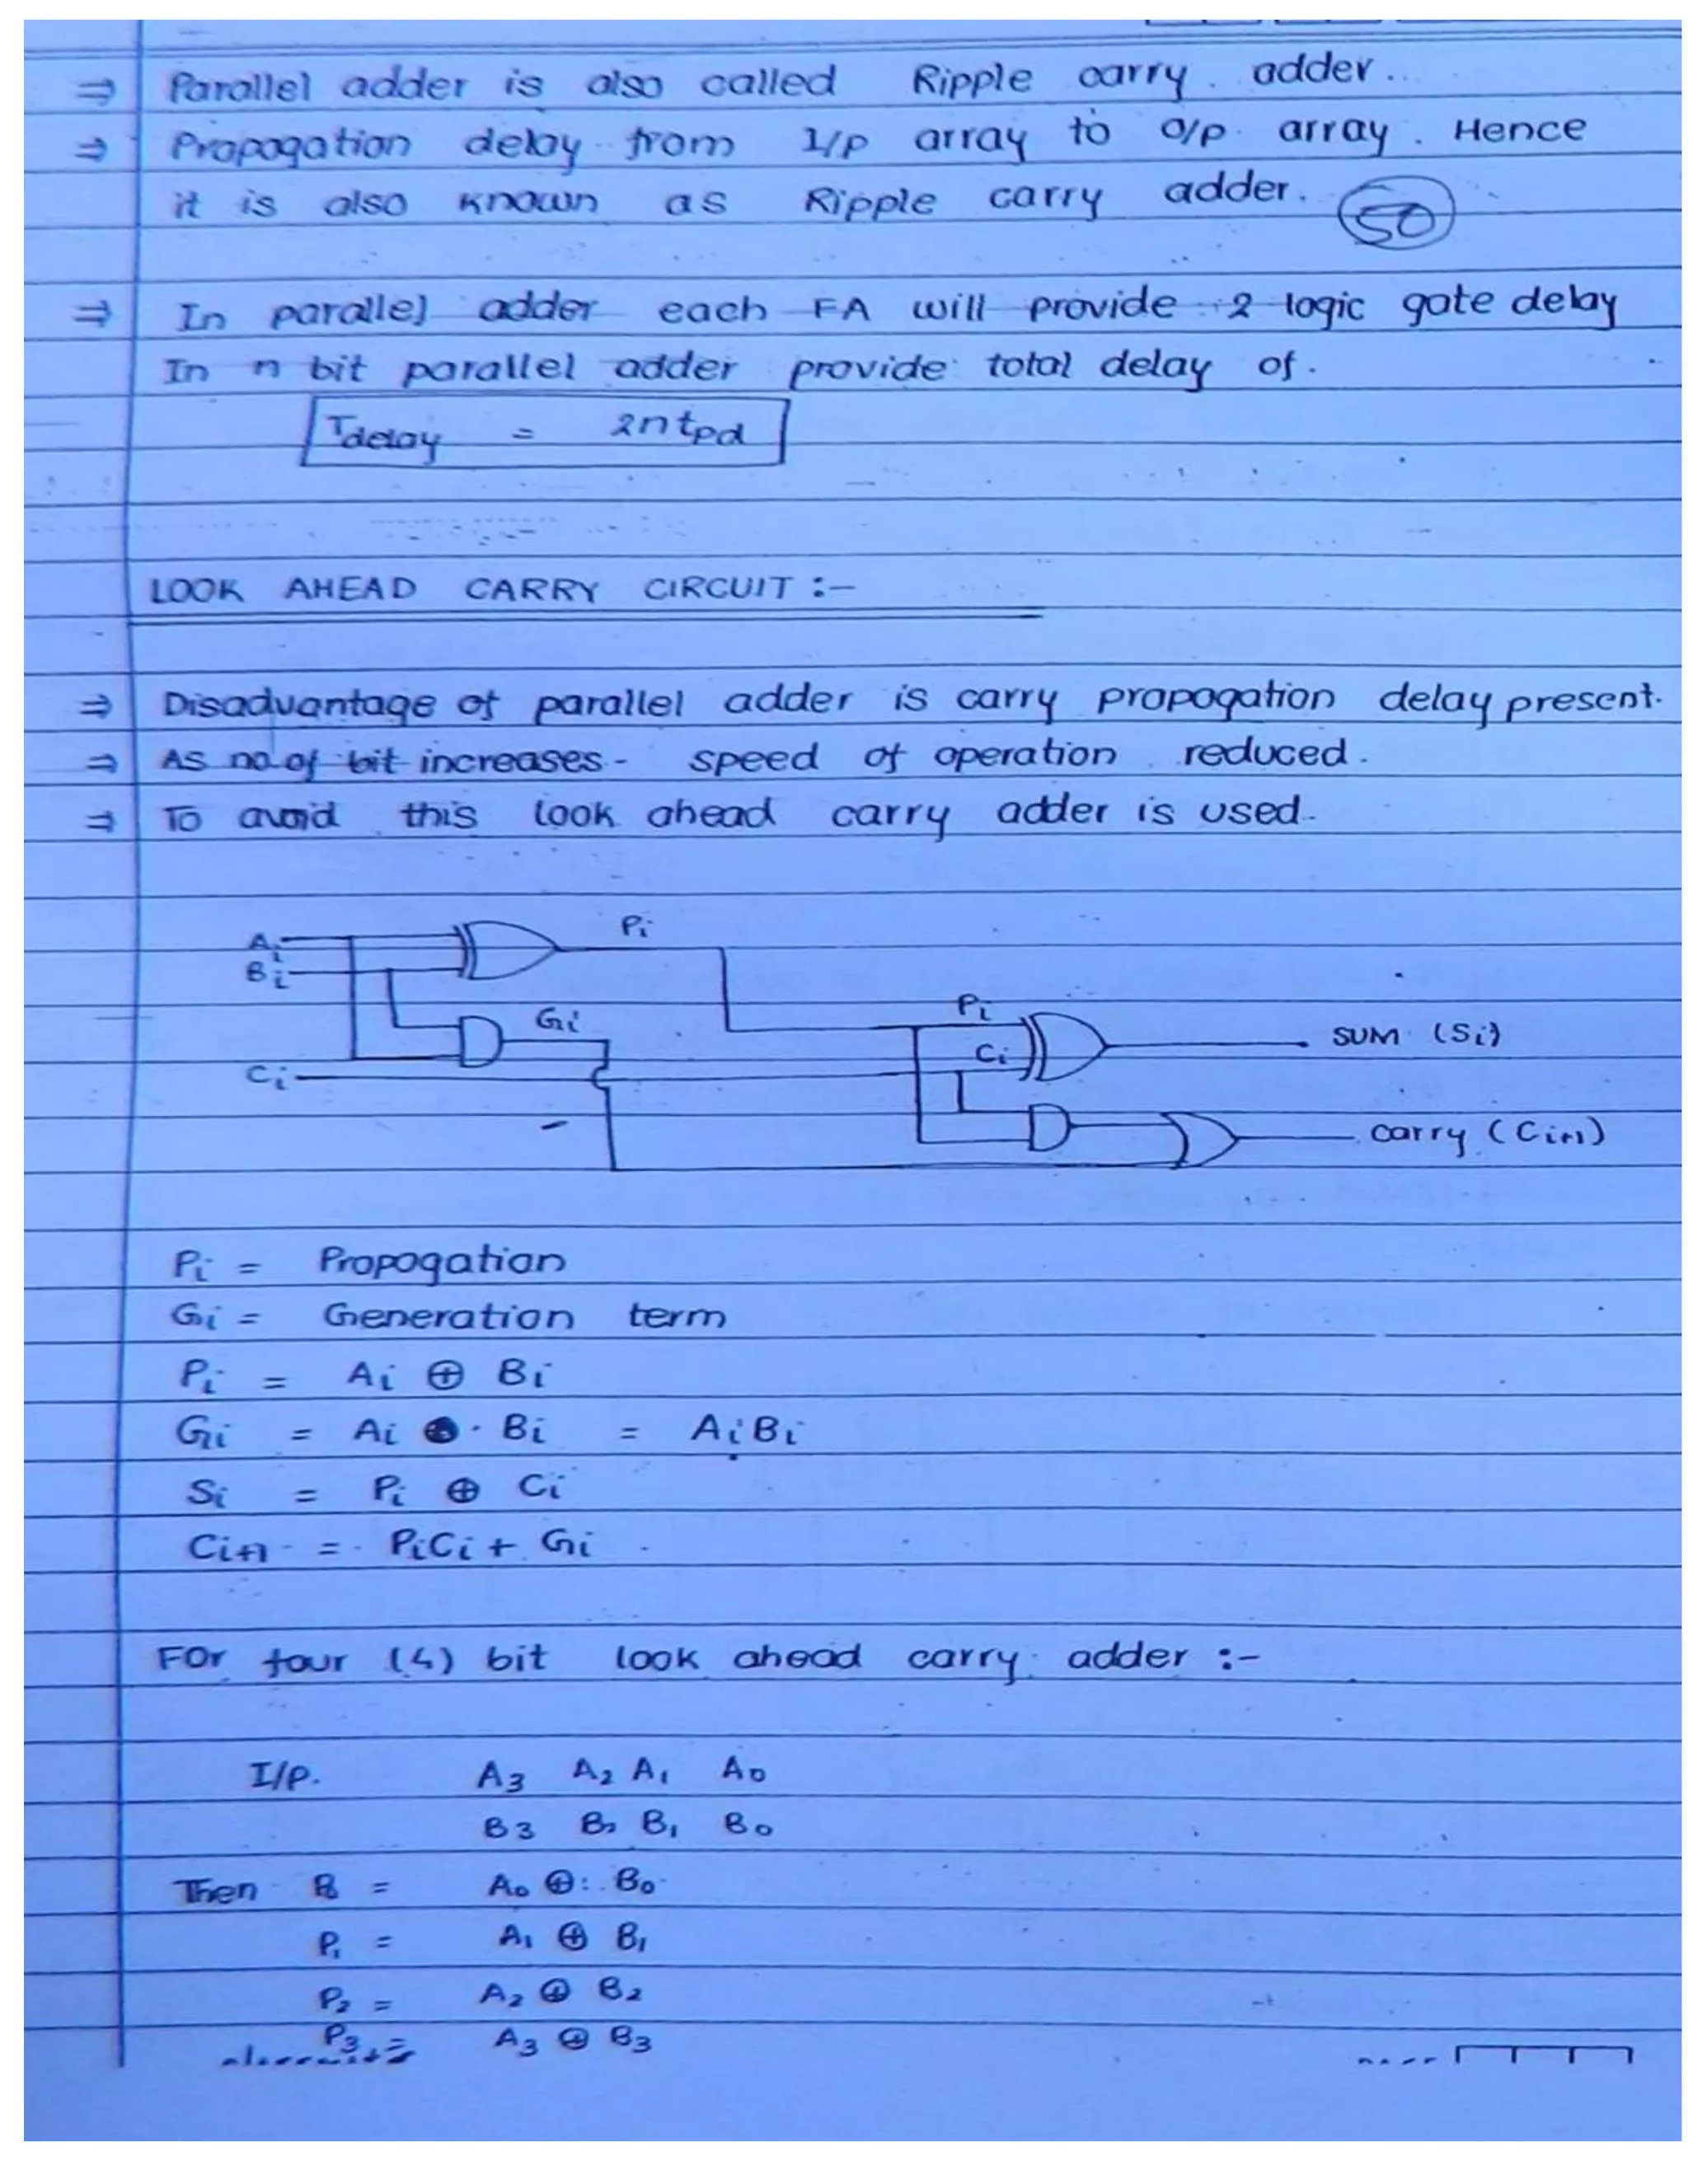 ⇒ Parallel adder is also called Ripple carry adder.
⇒ Propogation delay from I/P array to O/P array. Hence
it is also known as Ripple carry adder.
50
⇒ In parallel adder each FA will provide 2 logic gate delay
In n bit parallel adder provide total delay of.
Tdelay = 2ntpd
LOOK AHEAD CARRY CIRCUIT :-
⇒ Disadvantage of parallel adder is carry propogation delay present.
⇒ As no of bit increases - speed of operation reduced.
⇒ To avoid this look ahead carry adder is used.
Pi
Ai
Bi
Gi
Pi
Ci
SUM (Si)
Ci
carry (Ci+1)
Pi = Propogation
Gi = Generation term
Pi = Ai ⊕ Bi
Gi = Ai · Bi = AiBi
Si = Pi ⊕ Ci
Ci+1 = PiCi + Gi
For four (4) bit look ahead carry adder :-
I/P. A3 A2 A1 A0
B3 B2 B1 B0
Then P0 = A0 ⊕ B0
P1 = A1 ⊕ B1
P2 = A2 ⊕ B2
P3 = A3 ⊕ B3